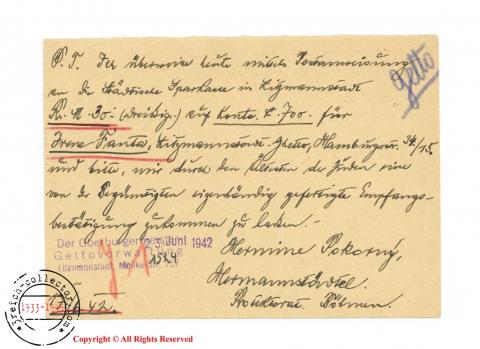 P. T. Ich überweise heute mittels Postanweisung
an die Städtische Sparkasse in Litzmannstadt
Ru. M. 30·- (dreißig.) auf Konto 700·- für
Irene Fanta, Litzmannstadt-Ghetto, Hamburgerstr. 34/15.
und bitte, mir durch den Ältesten der Juden eine
von der Begünstigten eigenhändig gefertigte Empfangs-
bestätigung zukommen zu lassen.-
Hermine Pokorný,
Hermannstädtel.
Protektorat Böhmen.
Getto
Der Oberbürgermeister
Gettoverwaltung
Litzmannstadt, Moltkestr. 157
23. Juni 1942
42.
3reich-collector.com
1933-19
Copyright © All Rights Reserved